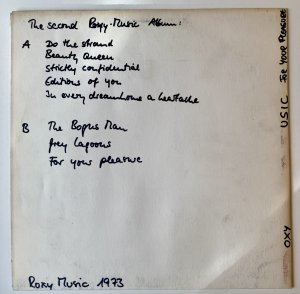 The second Roxy-Music Album:
A Do the strand
Beauty Queen
strictly confidential
Editions of you
In every dreamhome a heartache
B The Bogus Man
grey Lagoons
For your pleasure
Roxy Music 1973
OXY USIC FOR YOUR PLEASURE